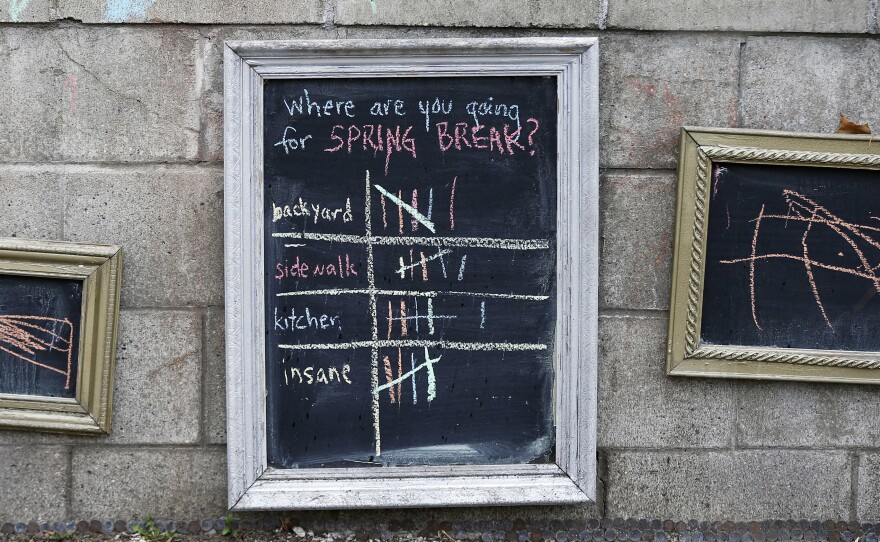 Where are you going
for SPRING BREAK?
backyard
sidewalk
kitchen
insane